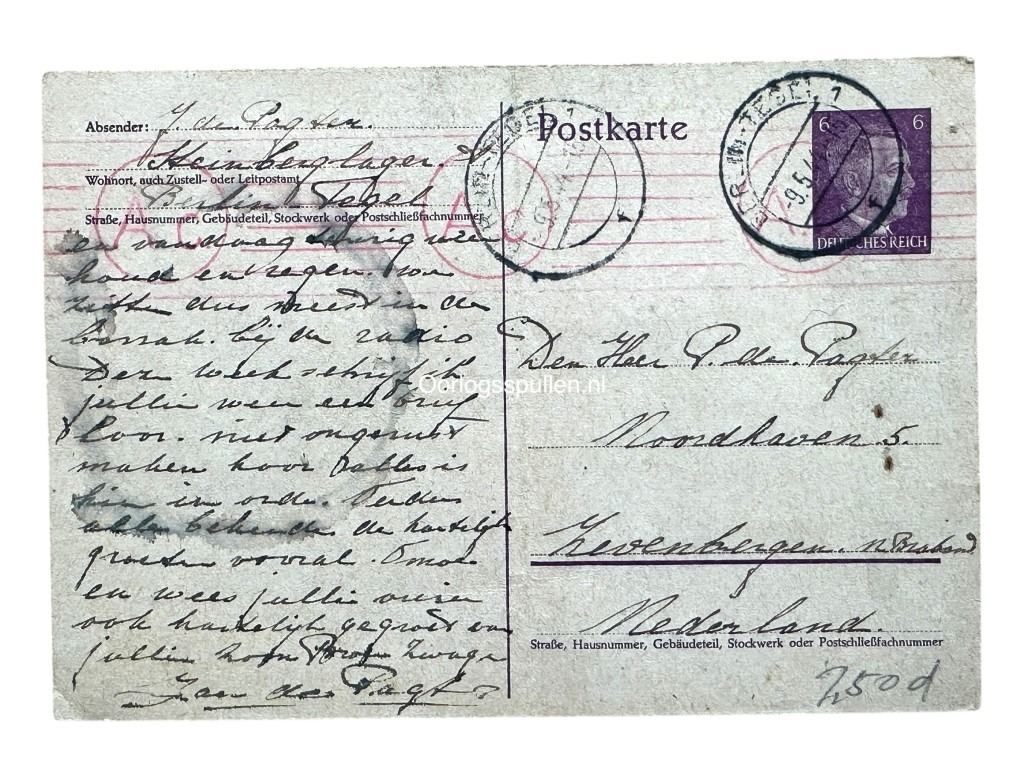 Absender: J. de Pagter.
Steinberglager.
Wohnort, auch Zustell- oder Leitpostamt
Berlin Tegel
Straße, Hausnummer, Gebäudeteil, Stockwerk oder Postschließfachnummer
en vandaag weer
koud en regen. we
zitten dus meest in de
barrak. bij de radio
Deze week schrijf ik
jullie weer een brief
hoor. niet ongerust
maken hoor alles is
hier in orde. Verder
alle bekenden de hartelijke
groeten vooral. Omoe
en wees jullie
ook hartelijk gegroet van
jullie zoon Broer Zwager
Jan de Pagter
Postkarte
BERLIN-TEGEL 1
-9.5.44
r
BERLIN-TEGEL 1
-9.5.44
r
6 6
DEUTSCHES REICH
Den Heer P. de Pagter
Noordhaven 5.
Zevenbergen. N Brabant
Nederland.
Straße, Hausnummer, Gebäudeteil, Stockwerk oder Postschließfachnummer
250d
Oorlogsspullen.nl